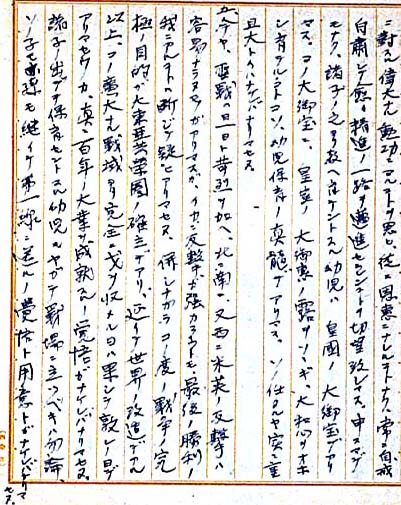 ニ対スル偉大ナ勲功デアルトヲ思ヒ、徒ニ恩恵ニナレルコトナク、常ニ自戒
自粛シテ愈々精進ノ一路ヲ邁進センコトヲ切望致シマス。申スマデ
モナク、諸子ノ之ヨリ教ヘ保ケントスル幼児ハ 皇国ノ大御宝デアリ
マス。コノ大御宝ニ、皇室ノ大御恵ノ露ヲソソギ、大和心ヲオホ
シ育テルコトコソ、幼児保育ノ真髄デアリマス。ソノ任タルヤ実ニ重
且大ト云ハナケレバナリマセヌ。
五、今ヤ、聖戦ハ日一日苛烈ヲ加ヘ、北ニ南ニ、又西ニ米英ノ反撃ハ
容易ナラヌモノガアリマスガ、イカニ反撃ガ強カラウトモ、最後ノ勝利ノ
我ニアルコトハ断ジテ疑ヒアリマセヌ。併シナガラコノ度ノ戦争ノ完
極目的ガ大東亜共栄圏ノ確立デアリ、延イテ世界ノ改造デアル
以上、コノ広大ナル戦域ヨリ完全ニ戈ヲ収メル日ハ果シテ何ノ日デ
アリマセウカ。真ニ百年ノ大業ヲ成就スルノ覚悟ガナケレバナリマセヌ。
諸子ノ出デテ保育セントスル幼児モヤガテ戦場ニ立ツベキハ勿論、
ソノ子モ亦孫モ継イデ第一線ニ送ルノ覚悟ト用意トガナケレバナリマ
セヌ。